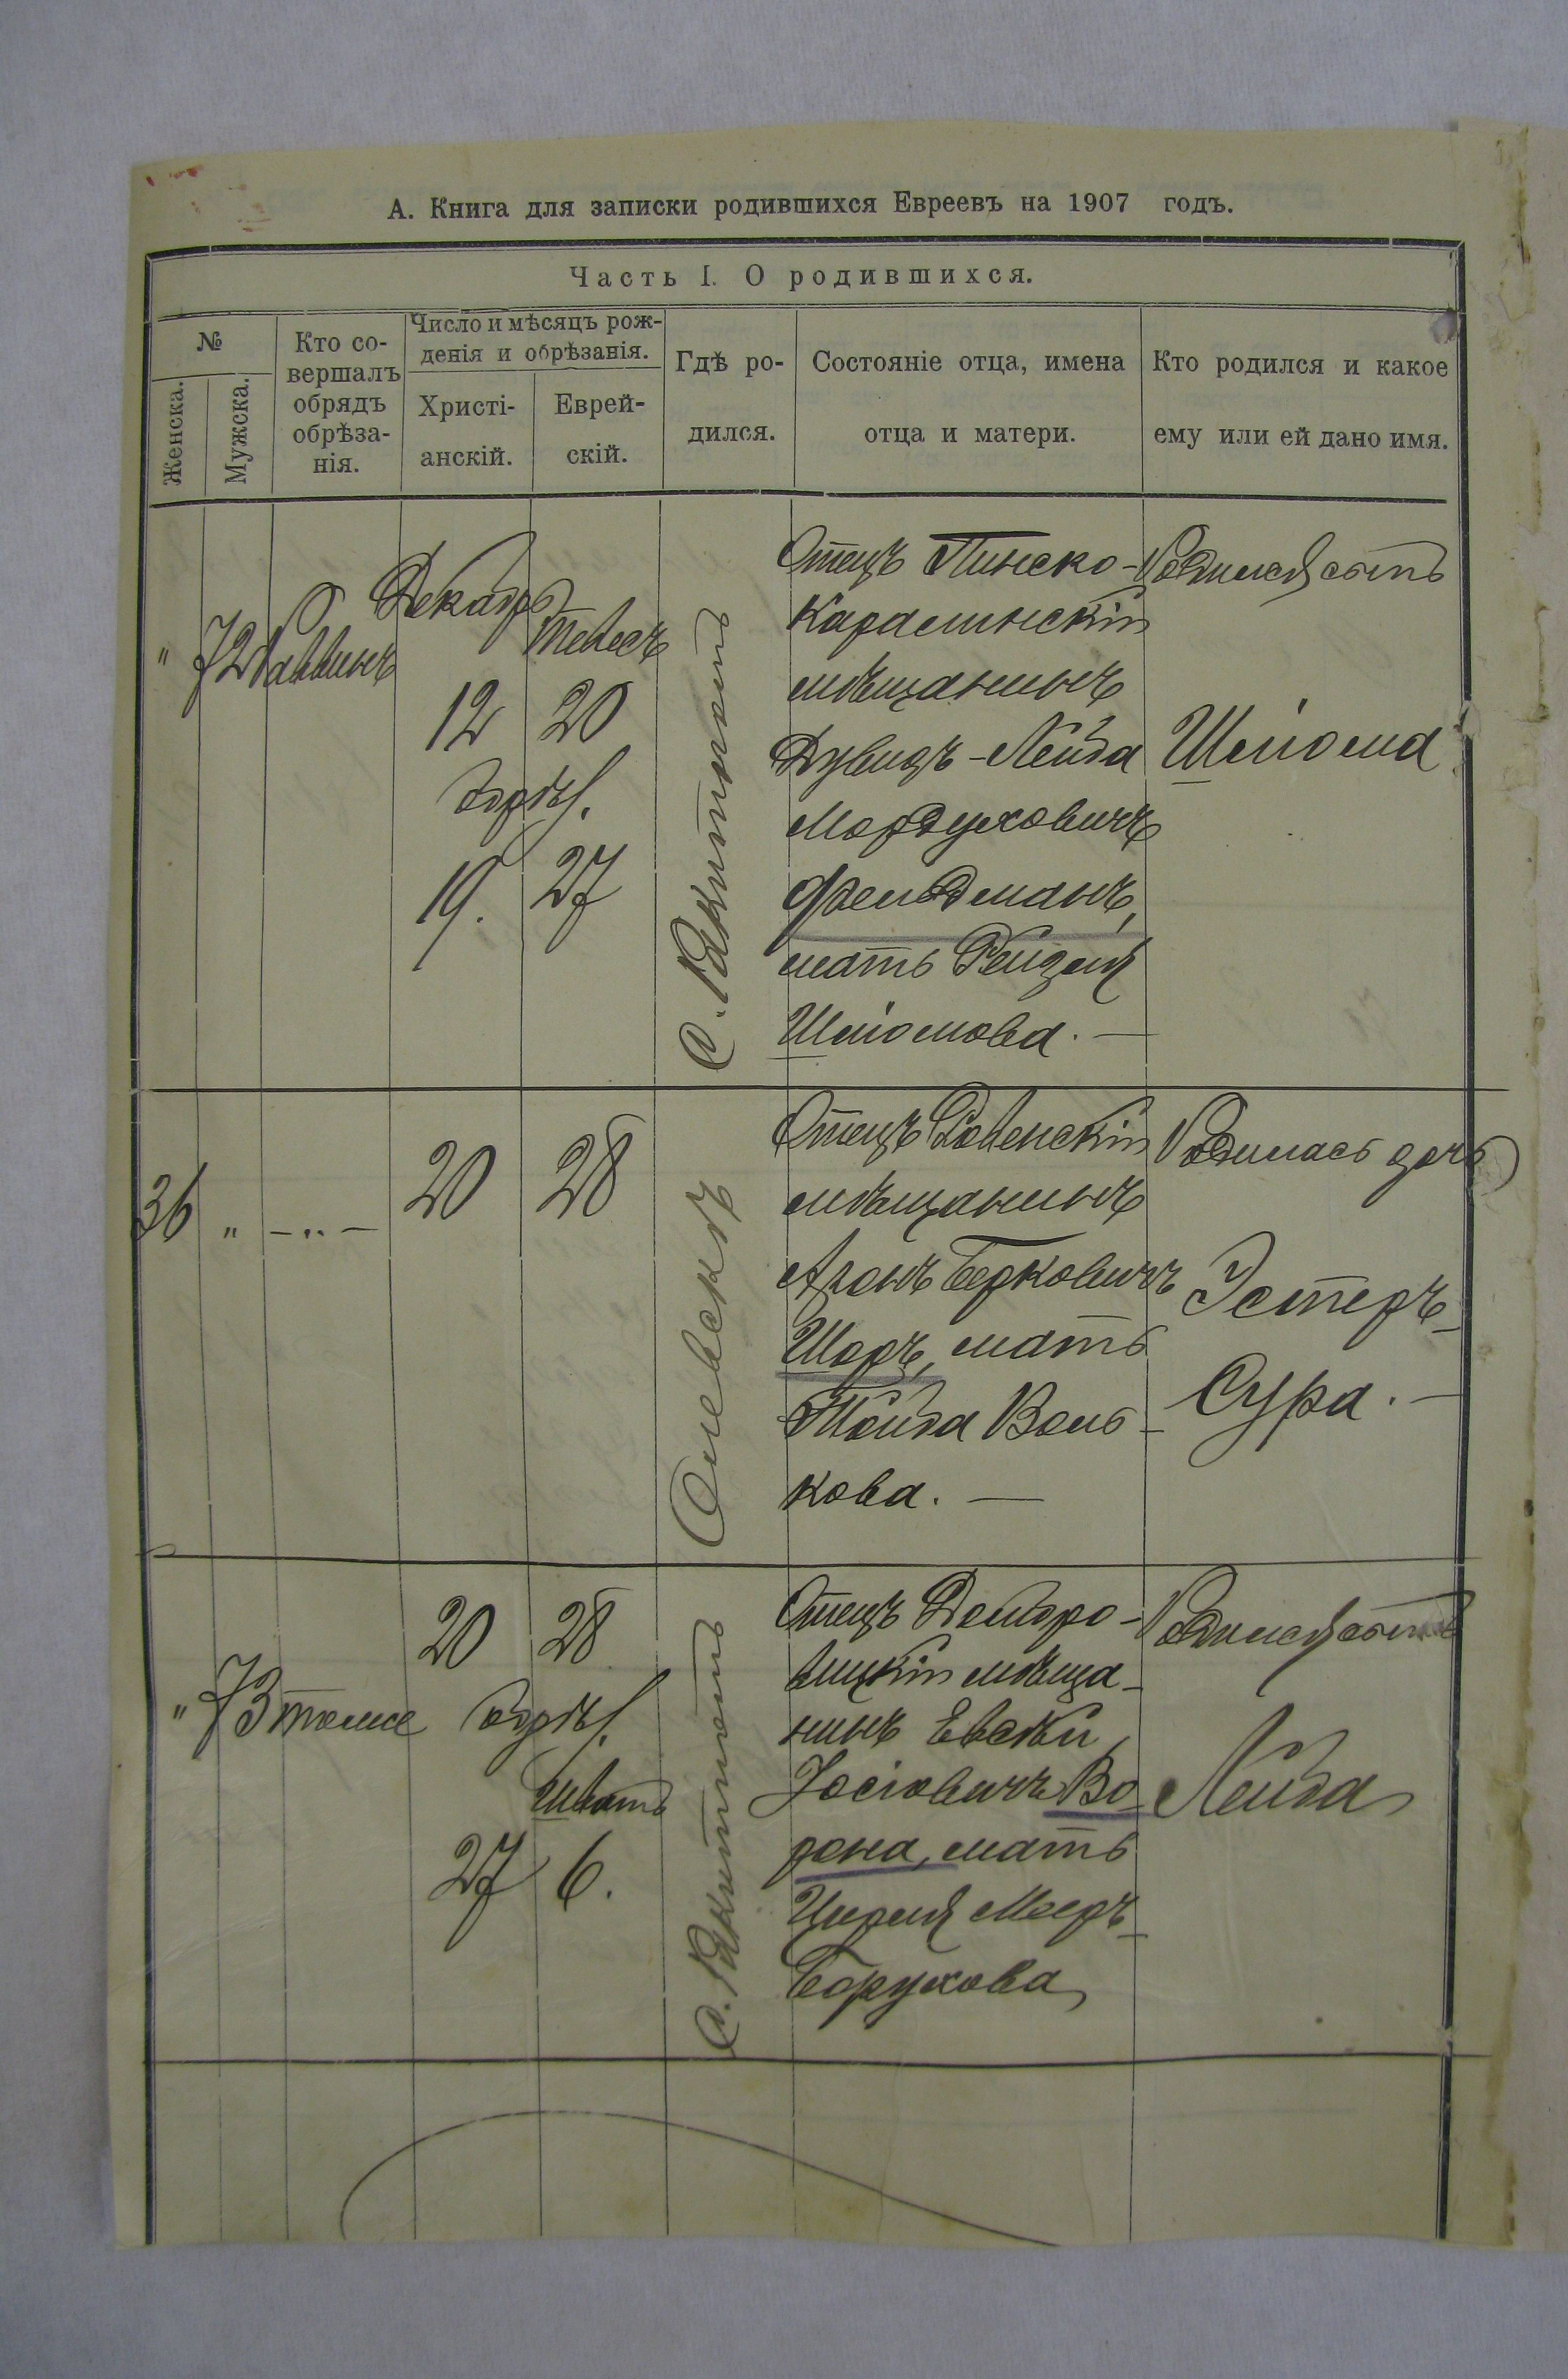 А. Книга для записки родившихся Евреевъ на 1907 годъ.
Часть I. О родившихся.
№
Женска.
Мужска.
Кто со-
вершалъ
обрядъ
обрѣза-
нія.
Число и мѣсяцъ рож-
денія и обрѣзанія.
Христі-
анскій.
Еврей-
скій.
Гдѣ ро-
дился.
Состояніе отца, имена
отца и матери.
Кто родился и какое
ему или ей дано имя.
"
72
Раввинъ
Декабрь
12
обрѣз.
19.
Тевесъ
20
27
с. Ракитно
Отецъ Пинско-
Каралинскій
мѣщанинъ
Дувидъ-Лейба
Мордуховичъ
Фельдманъ,
мать Рейзля
Шліомова. —
Родился сынъ
Шліома
36
"
— " —
20
28
Олевскъ
Отецъ Ровенскій
мѣщанинъ
Аронъ Берковичъ
Шоръ, мать
Тойба Воль-
кова. —
Родилась дочь
Эстеръ-
Сура. —
"
73
тоже
20
обрѣз.
27
28
Шватъ
6.
с. Ракитно
Отецъ Домбро-
вицкій мѣща-
нинъ
Іосіовичъ Во-
рона, мать
Цирля Мееръ-
Борухова
Родился сынъ
Лейба